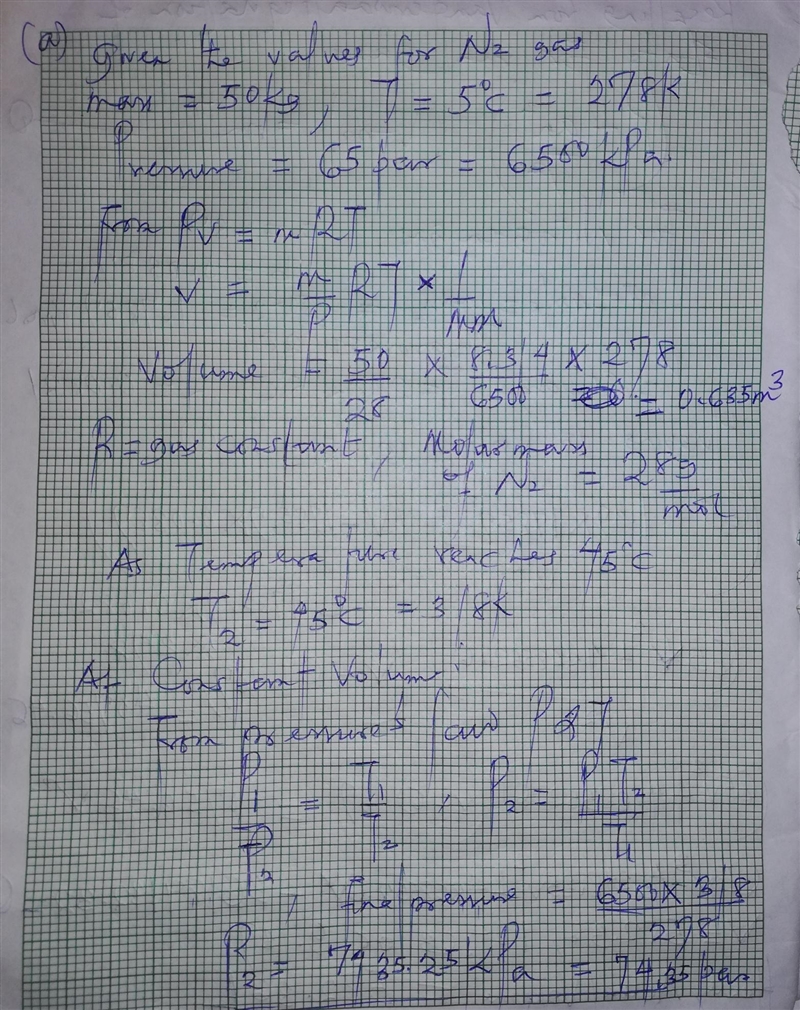 (a) Given the values for N₂ gas
mass = 50kg, T = 5°C = 278K
Pressure = 65 bar = 6500 kPa.
From PV = nRT
V = m/P RT × 1/Mm
Volume = 50/28 × 8.314 × 278/6500 = 0.635m³
R = gas constant, Molar mass
of N₂ = 28g/mol
As Temperature reaches 45°C
T₂ = 45°C = 318K
At Constant Volume;
From pressure's law P α T
P₁/P₂ = T₁/T₂ , P₂ = P₁T₂/T₁
, final pressure = 6500 × 318/278
P₂ = 7435.25 kPa = 74.35 bar